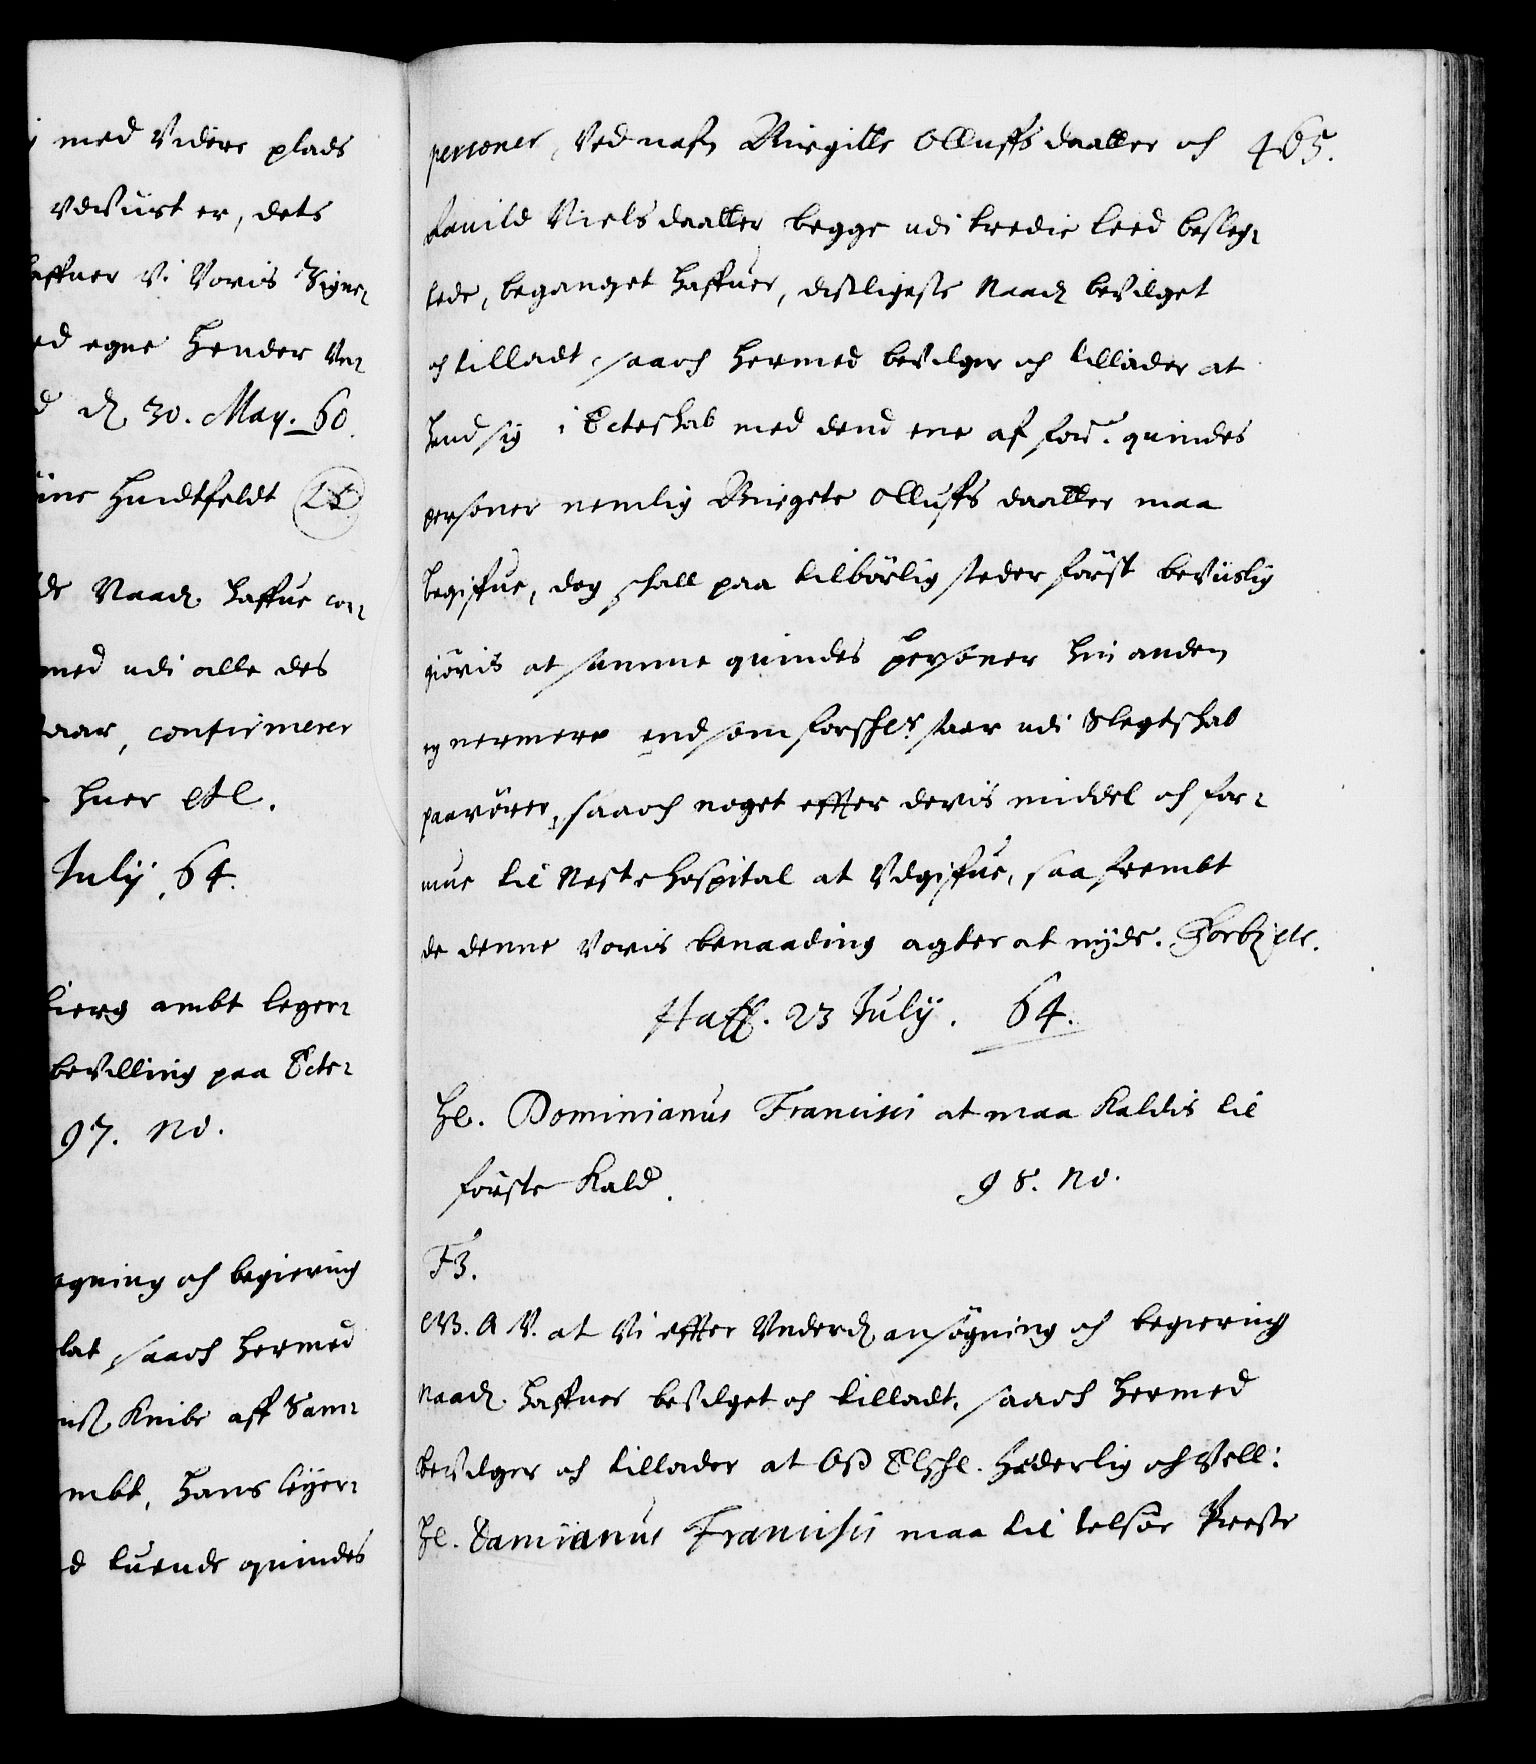 med Videre plads
vdviist er, dets
haffuer Vi Voris Signe-
ed egne Hender Un-
d d. 30. May. 60.
Huidtfeldt LS
de Naad. haffue con-
med udi alle des
staar, confirmerer
huer etc.
July. 64.
bierg ambt leger-
bevilling paa Ecte-
97. No.
søgning och begiering
lat, saaoch hermed
Knibe aff Sam-
ambt, hans leÿer-
d tuende quindes
personer, Ved nafn Birgitte Olluffsdaatter och 465.
Bauild Nielsdaatter begge udi tredie leed besleg-
tede, begaaget haffuer, disligeste Naad. bevilget
och tilladt, saaoch hermed bevilger och tillader at
hand sig i Ecteskab med dend ene af for.ne quindes
personer nemlig Birgete Olluffs daatter maa
begifue, dog skall paa tilbörlig steder först beviislig
giöris at samme quindes personer hin anden
ey nermere end som forschr. staar udi Slegtskab
paarörer, saaoch noget effter deris middel och for-
mue til Neste Hospital at Udgifue, saa frembt
de denne Voris benaading agter at nÿde. Forb. etc.
Haff. 23 July. 64.
Hr. Dominianus Francisci at maa Kaldis til
förste Kald. 98. No.
F3.
G. A. V. at Vi effter Underd. ansögning och begiering
Naad. haffuer bevilget och tilladt, saaoch hermed
bevilger och tillader at Oß Elschl. Hæderlig och Vell:
Hr. Damianus Francisci maa til